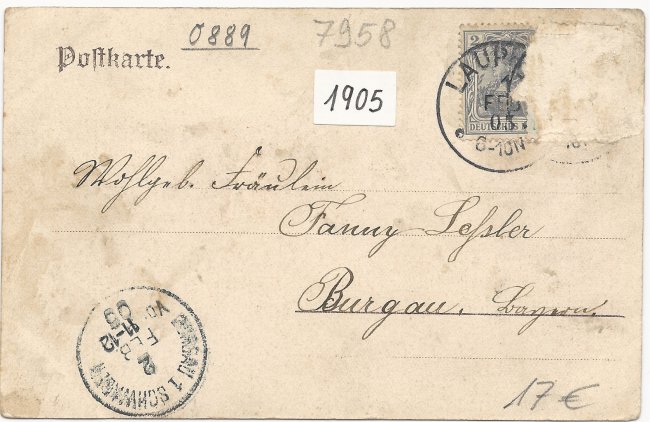 0889
7958
Postkarte.
1905
2
LAUPH
FEB
05
DEUTSCHES
6-10N
Wohlgeb. Fräulein
Fanny Lessler
Burgau. Bayern.
BURGAU 1. SCHWABEN
2
FEB
11-12
05
17 €